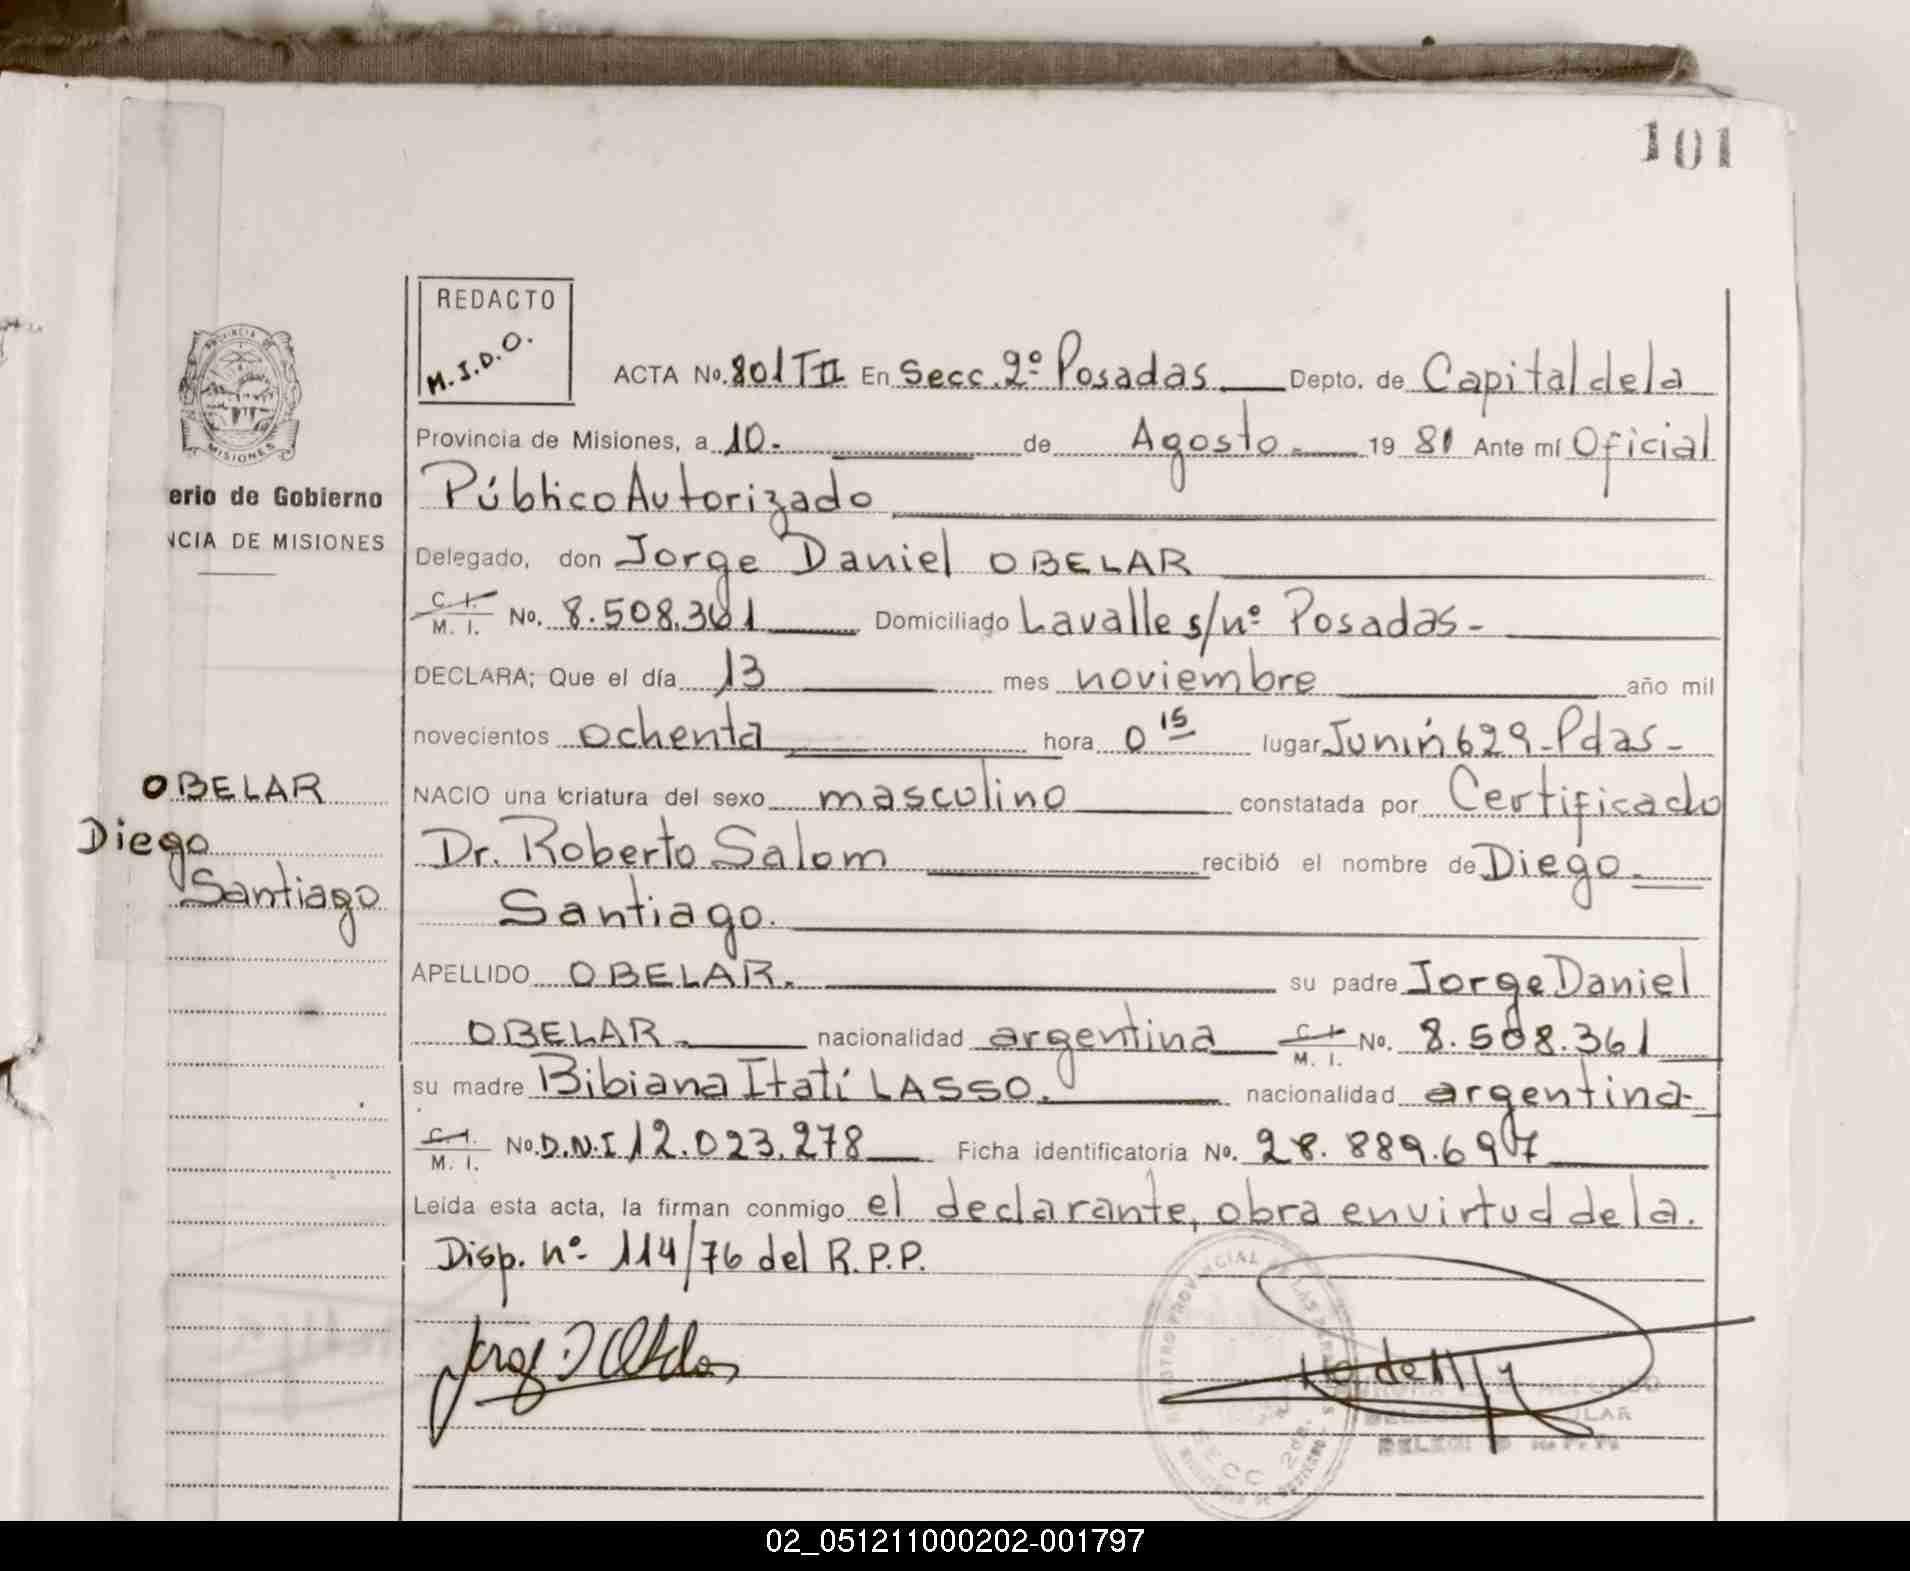 101
REDACTO
M.I.D.O.
ACTA No. 801 T II En Secc. 2º Posadas Depto. de Capital de la
Provincia de Misiones, a 10.- de Agosto.- 19 81 Ante mí Oficial
Público Autorizado
Delegado, don Jorge Daniel OBELAR
C. I. M. I. No. 8.508.361 Domiciliado Lavalle s/nº Posadas-
DECLARA; Que el día 13 mes noviembre año mil
novecientos ochenta hora 0 15 lugar Junín 629-Pdas-
NACIO una criatura del sexo masculino constatada por Certificado
Dr. Roberto Salom recibió el nombre de Diego.
Santiago.
APELLIDO OBELAR. su padre Jorge Daniel
OBELAR. nacionalidad argentina C. I. M. I. No. 8.508.361
su madre Bibiana Itatí LASSO. nacionalidad argentina-
C. I. M. I. No. D.N.I 12.023.278 Ficha identificatoria No. 28.889.697
Leída esta acta, la firman conmigo el declarante, obra en virtud de la.
Disp. nº 114/76 del R.P.P.
PROVINCIA DE
MISIONES
erio de Gobierno
NCIA DE MISIONES
OBELAR
Diego
Santiago
SECC 2da.
02_051211000202-001797